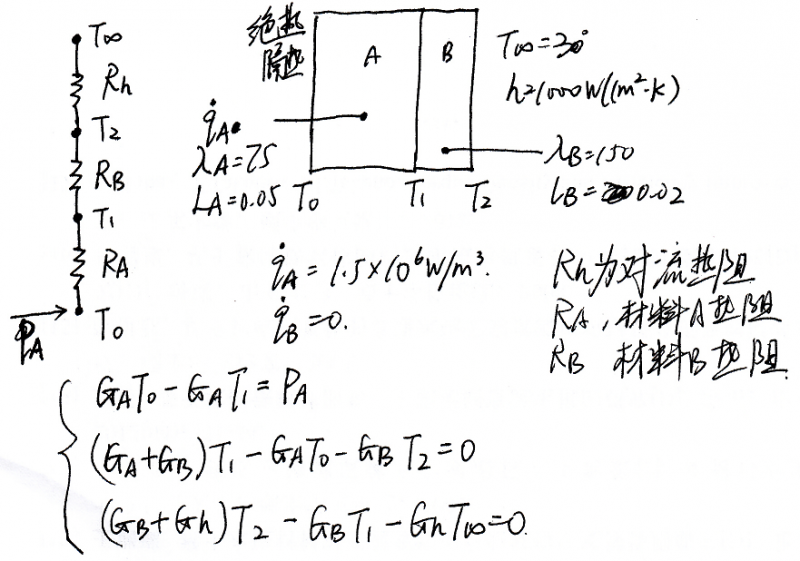 T∞
Rh
T2
RB
T1
RA
PA
T0
绝热
隔热
A
B
T∞=30°
h=1000W/(m²·K)
q̇A
λA=75
LA=0.05
T0
T1
T2
λB=150
LB=0.02
q̇A = 1.5×10⁶W/m³.
q̇B=0.
Rh为对流热阻
RA,材料A热阻
RB 材料B热阻
GAT0-GAT1=PA
(GA+GB)T1-GAT0-GBT2=0
(GB+Gh)T2-GBT1-GhT∞=0.